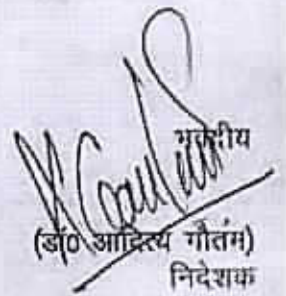 भवदीय
(डॉ0 आदित्य गौतम)
निदेशक